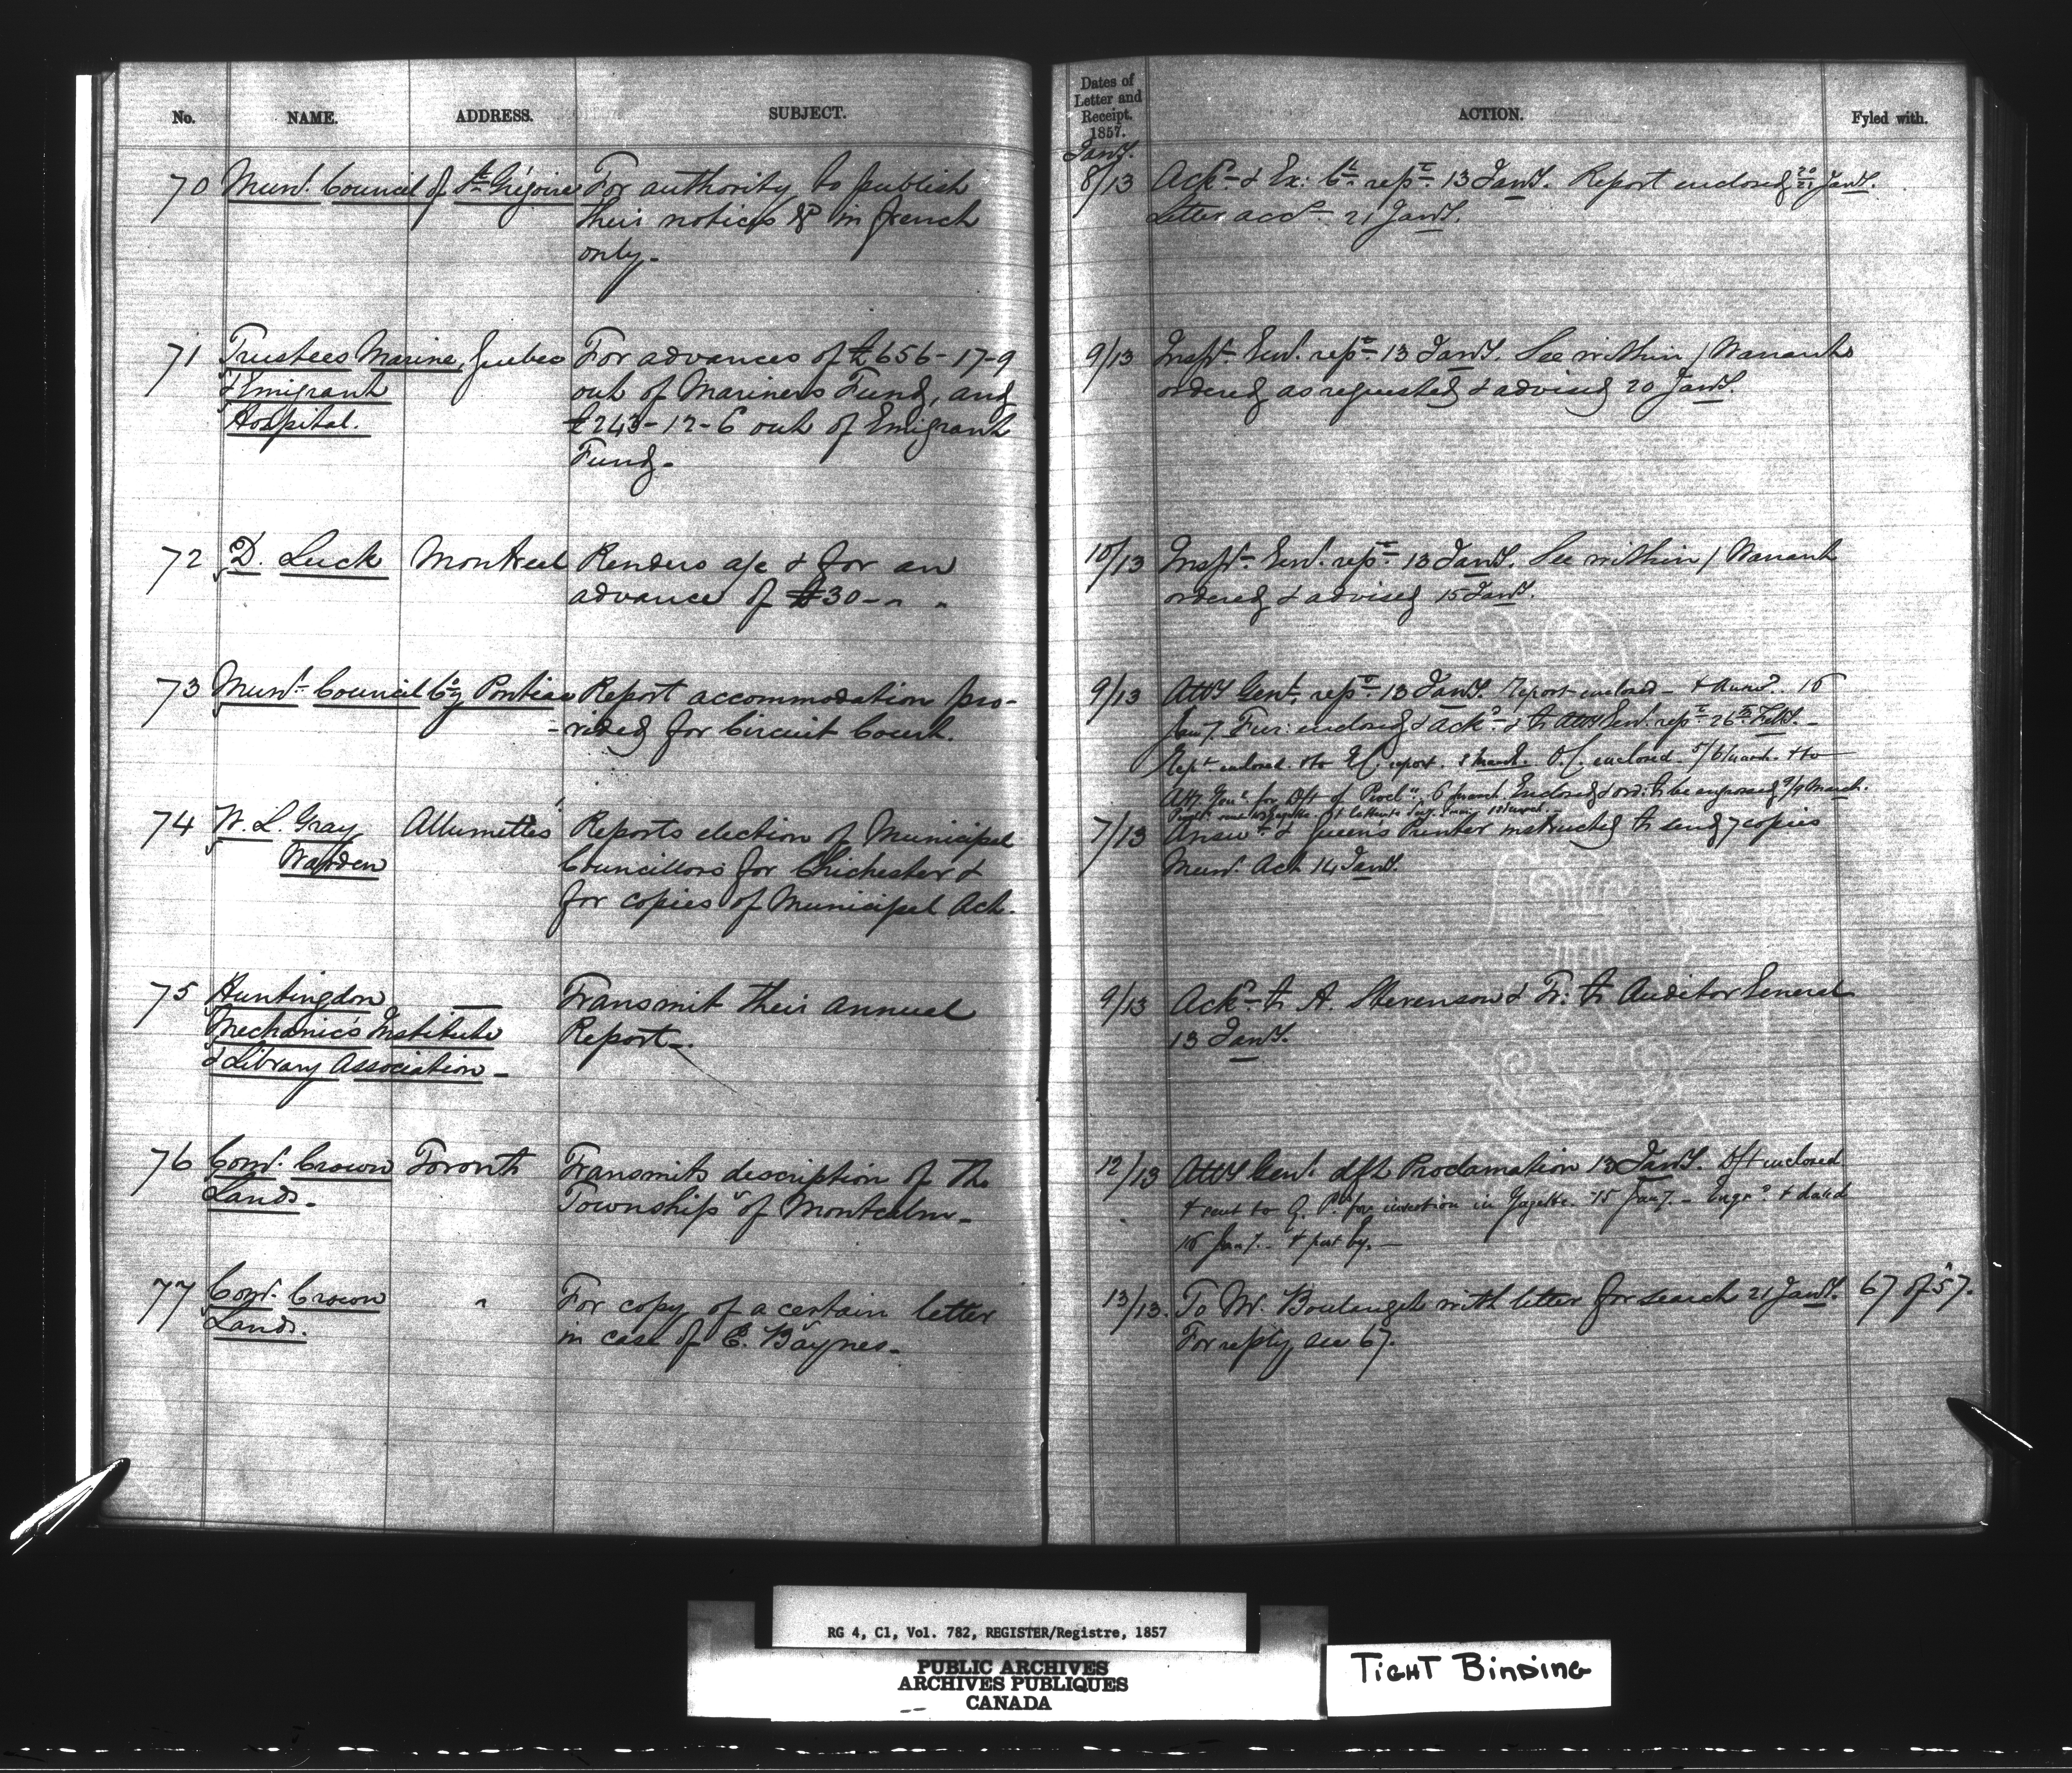 No. NAME. ADDRESS. SUBJECT.
70 Munl. Council of Ste Grégoire For authority to publish
their notices &c in french
only.
71 Trustees Marine, Quebec For advances of £656-17-9
& Emigrant out of Mariners Fund, and
Hospital. £243-12-6 out of Emigrant
Fund.
72 D. Luck Montreal Renders a/c & for an
advance of £30 - " "
73 Munl. Council Cy Pontiac Report accommodation pro-
-vided for Circuit Court.
74 W. L. Gray Allumettes Reports election of Municipal
Warden Councillors for Chichester &
for copies of Municipal Act.
75 Huntingdon — Transmit their annual
Mechanic's Institute Report.
& Library Association
76 Comr. Crown Toronto Transmits description of the
Lands. Township of Montcalm.
77 Comr. Crown " For copy of a certain letter
Lands. in case of E. Baynes.
Dates of
Letter and
Receipt.
1857.
ACTION. Fyled with.
Jany.
8/13 Ackd. & Ex: Cl. repe. 13 Jany. Report enclosed 20/21 Jany.
Letter accd. 21 Jany.
9/13 Inspr. Genl. repe. 13 Jany. See within / Warrants
ordered as requested & advised 20 Jany.
10/13 Inspr. Genl. repe. 13 Jany. See within / Warrant
ordered & advised 15 Jany.
9/13 Atty Genl. repe. 13 Jany. Report enclosed - & Answd. 16
Jany. enclosed & ackd. & to Atty Genl. repe. 26 Feby.
Rept. enclosed & to E.C. report. 2 March. O.C. enclosed 5/6 March & to
Atty. Genl. for Dft of Procln. 6 March. Enclosed & ord. to be engrossed 9/9 March.
7/13 Answd. & Queens Printer instructed to send 7 copies
Mun. Act 14 Jany.
9/13 Ackd. to A. Stevenson & Tr: to Auditor General
13 Jany.
12/13 Atty Genl. dft Proclamation 13 Jany. Dft enclosed
& sent to Q. P. for insertion in Gazette. 15 Jany. - Engrd. & dated
16 Jany. & put by. —
13/13. To Mr. Boulanget with letter for search 21 Jany. 67 of 57.
For reply see 67.
RG 4, C1, Vol. 782, REGISTER/Registre, 1857
PUBLIC ARCHIVES
ARCHIVES PUBLIQUES
CANADA
TIGHT BINDING